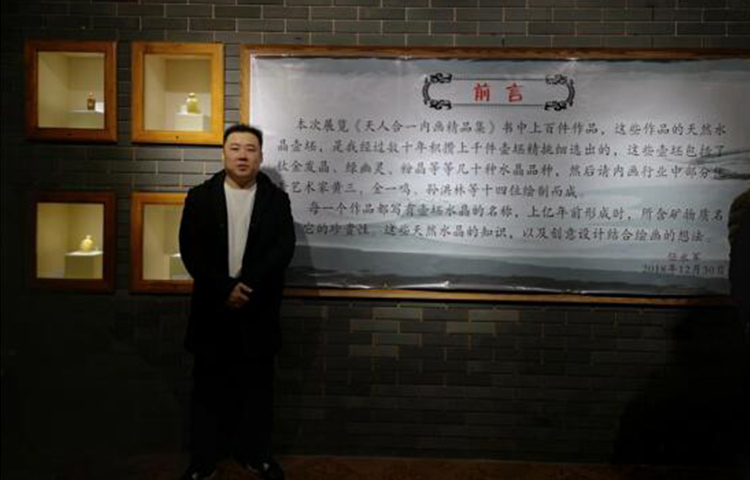 前言
本次展览《天人合一内画精品集》书中上百件作品，这些作品的天然水
晶壶坯，是我经过数十年积攒上千件壶坯精挑细选出的，这些壶坯包括了
钛金发晶、绿幽灵、粉晶等等几十种水晶品种，然后请内画行业中部分
艺术家黄三、金一鸣、孙洪林等十四位绘制而成。
每一个作品都写有壶坯水晶的名称，上亿年前形成时，所含矿物质名
它的珍贵性。这些天然水晶的知识，以及创意设计结合绘画的想法。
2018年12月30日